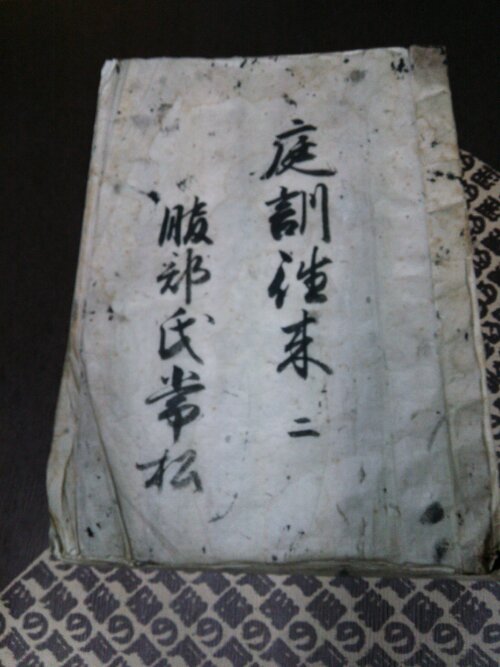 庭訓徃来 二
服部氏常松